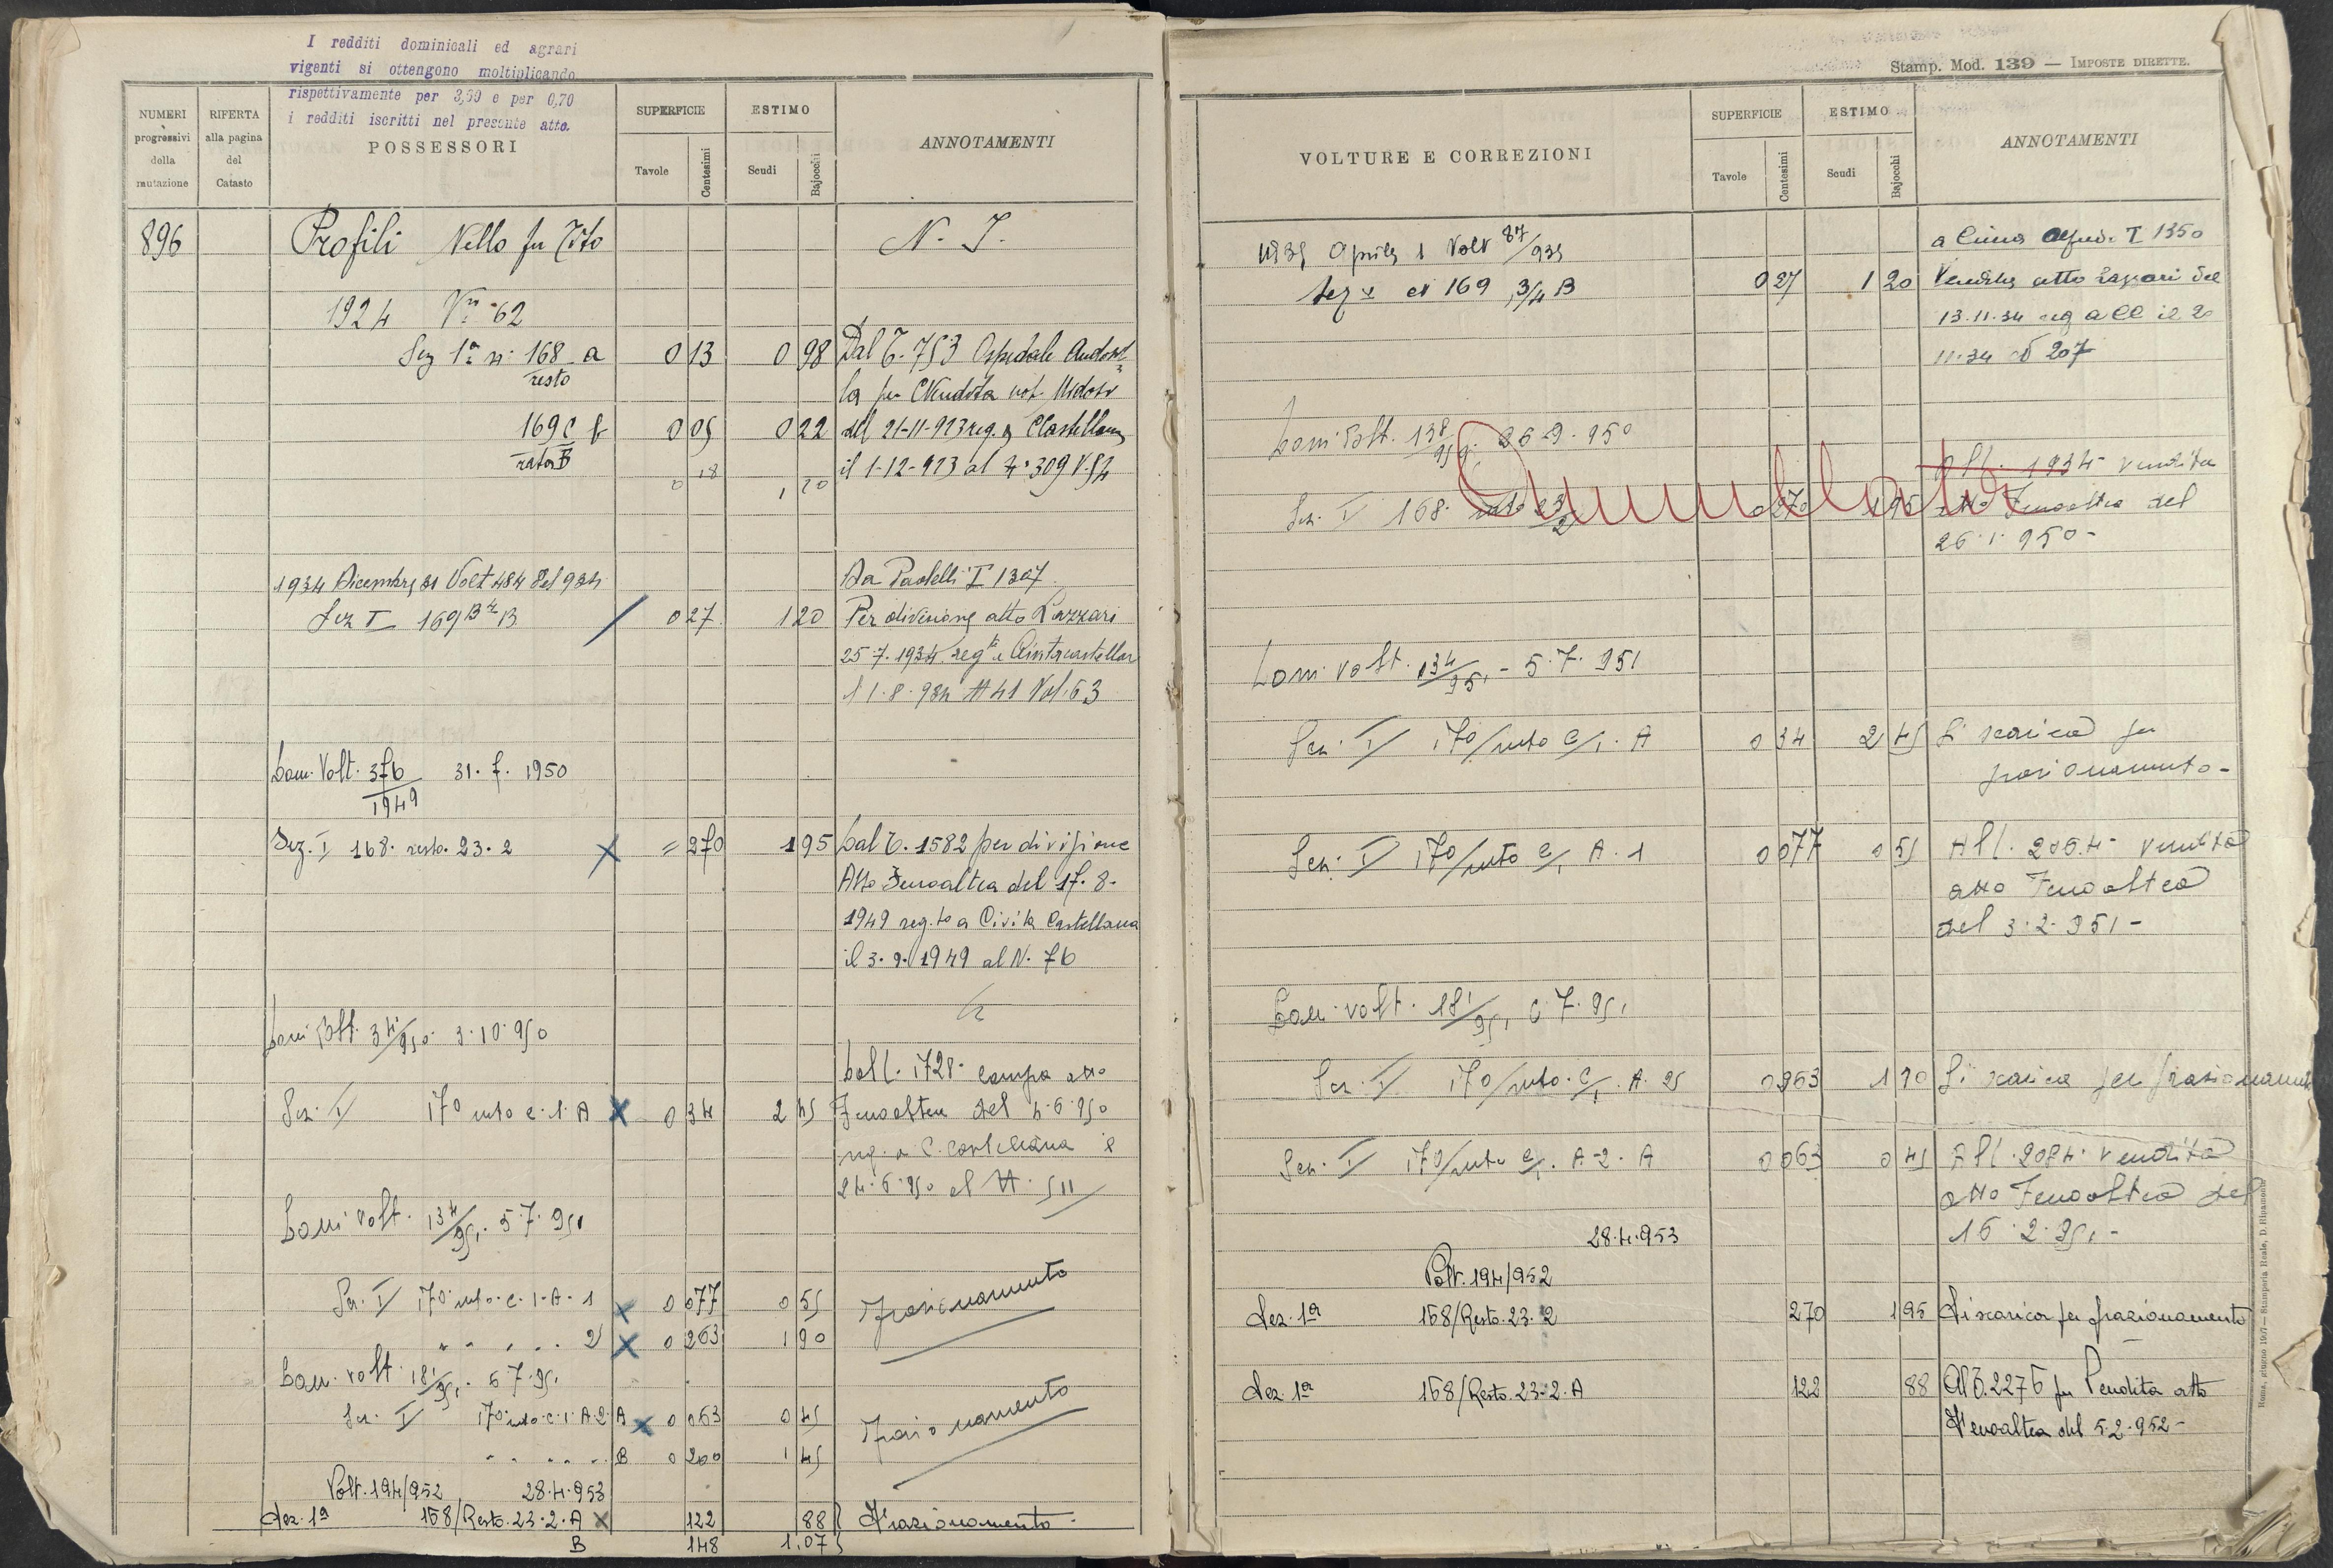 I redditi dominicali ed agrari
vigenti si ottengono moltiplicando
rispettivamente per 3,60 e per 0,70
i redditi iscritti nel presente atto.
NUMERI progressivi della mutazione
RIFERTA alla pagina del Catasto
POSSESSORI
SUPERFICIE
Tavole Centesimi
ESTIMO
Scudi Bajocchi
ANNOTAMENTI
896 Profili Nello fu Tito N. I.
1924 Vra 62
Sez 1a n. 168 a 0 13 0 98 Dal T. 753 Ospedale
resto
la per Vendita not.
169 C b 0 05 0 22 del 21-11-923 reg. a C Castellana
rata B
0 18 1 20 il 1-12-923 al N. 309 V. 54
1934 Dicembre 31 Volt 484 del 934 Da Paolelli T 1307
Sez I 169 B B 0 27 1 20 Per divisione atto Lazzari
25.7.1934 regto a Civitacastellana
l 1.8.934 N 41 Vol. 63
Com. Volt. 376/1949 31.7.1950
Sez. I 168. resto. 23.2 = 270 195 Dal T. 1582 per divisione
Atto Fenoaltea del 17.8.
1949 reg.to a Civita Castellana
il 3.9.1949 al N. 76
Com Volt. 34/950 3.10.950
Dall. 1728. compra atto
Sez. I 170 resto C.1.A 0 34 2 45 Fenoaltea del 4.6.950
reg. a C. Castellana il
24.6.950 al N. 511
Com volt. 134/951. 5.7.951
Sez. I 170 resto C.1.A.1 0 077 0 55 Frazionamento
" " . . . 2 0 263 1 90
Com. volt 181/951. 6.7.951
Sez. I 170 resto C.1.A.2 A 0 063 0 45 Frazionamento
" . . . . B 0 200 1 45
Volt. 194/952 28.4.953
Sez. 1a 168/Resto.23.2.A 122 88 Frazionamento.
B 148 1.07
Stamp. Mod. 139 — IMPOSTE DIRETTE.
VOLTURE E CORREZIONI
SUPERFICIE
Tavole Centesimi
ESTIMO
Scudi Bajocchi
ANNOTAMENTI
1935 Aprile 1 Volt 87/935 a Cima T 1350
Sez I N 169 3/4 B 0 27 1 20 Vendita atto Lazzari del
13.11.34 reg a CC il 20
11.34 N 207
Com Volt. 138/950. 26.9.950
All. 1934 vendita
Sez. I 168. resto 23/2 0 270 1 95 atto Fenoaltea del
26.1.950-
Annullato
Com volt. 134/951 - 5.7.951
Sez. I 170/resto C/1. A 0 34 2 45 Si scarica per
frazionamento-
Sez. I 170/resto C/1 A.1 0 077 0 55 All. 2054- vendita
atto Fenoaltea
del 3.2.951-
Com. volt. 181/951 6.7.951
Sez. I 170/resto. C/1. A. 2 0 263 1 90 Si scarica per frazionamento
Sez. I 170/resto C/1. A-2. A 0 063 0 45 All. 2084. vendita
atto Fenoaltea del
16.2.951.-
28.4.953
Volt. 194/952
Sez. 1a 168/Resto.23.2 270 195 Si scarica per frazionamento
Sez. 1a 168/Resto.23-2.A 122 88 Al T. 2276 per Vendita atto
Fenoaltea del 5.2.952-
Roma, giugno 1907 — Stamperia Reale, D. Ripamonti